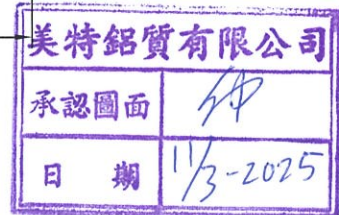 美特鋁質有限公司
承認圖面
日 期 11/3-2025